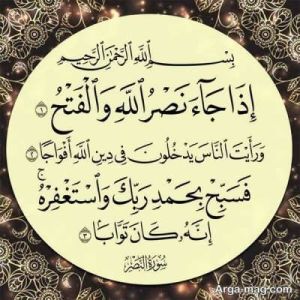 بِسْمِ اللَّهِ الرَّحْمَٰنِ الرَّحِيمِ
إِذَا جَاءَ نَصْرُ اللَّهِ وَالْفَتْحُ ١
وَرَأَيْتَ النَّاسَ يَدْخُلُونَ فِي دِينِ اللَّهِ أَفْوَاجًا ٢
فَسَبِّحْ بِحَمْدِ رَبِّكَ وَاسْتَغْفِرْهُ ۚ
إِنَّهُ كَانَ تَوَّابًا ٣
سُورَةُ النَّصْرِ
Arga-mag.com